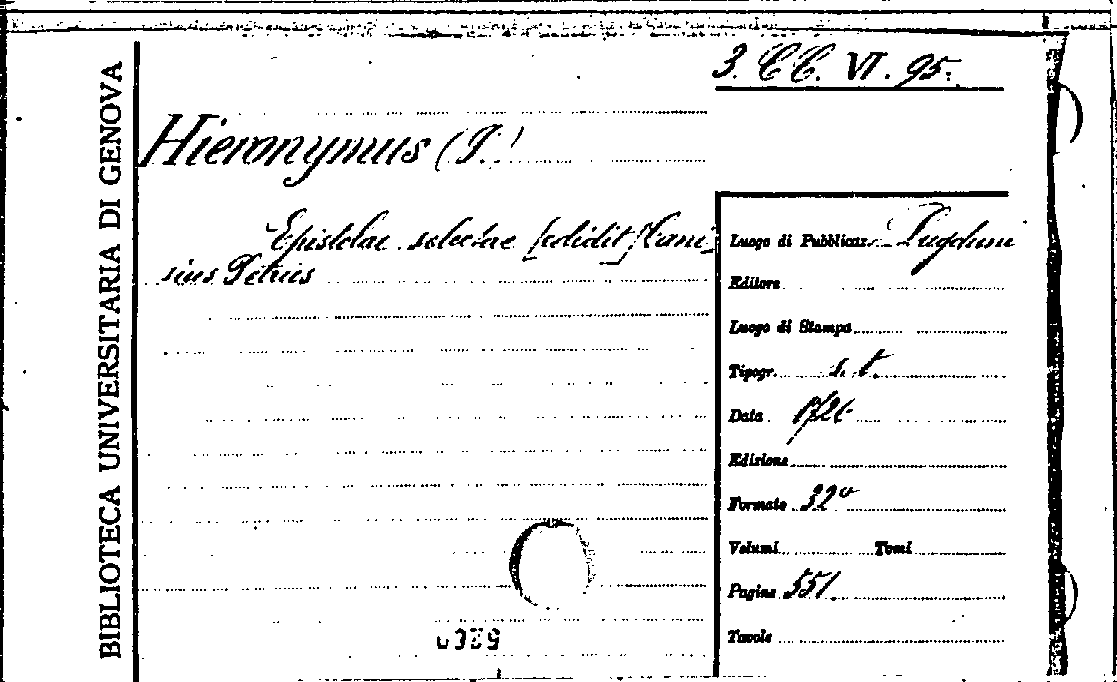 3. CC. VI. 95.
BIBLIOTECA UNIVERSITARIA DI GENOVA
Hieronymus (S.)
Epistolae selectae [edidit] Cani-
sius Petrus
Luogo di Pubblicaz. Lugduni
Editore
Luogo di Stampa
Tipogr. s. t.
Data 1726
Edizione
Formato 32°
Volumi Tomi
Pagine 551
Tavole